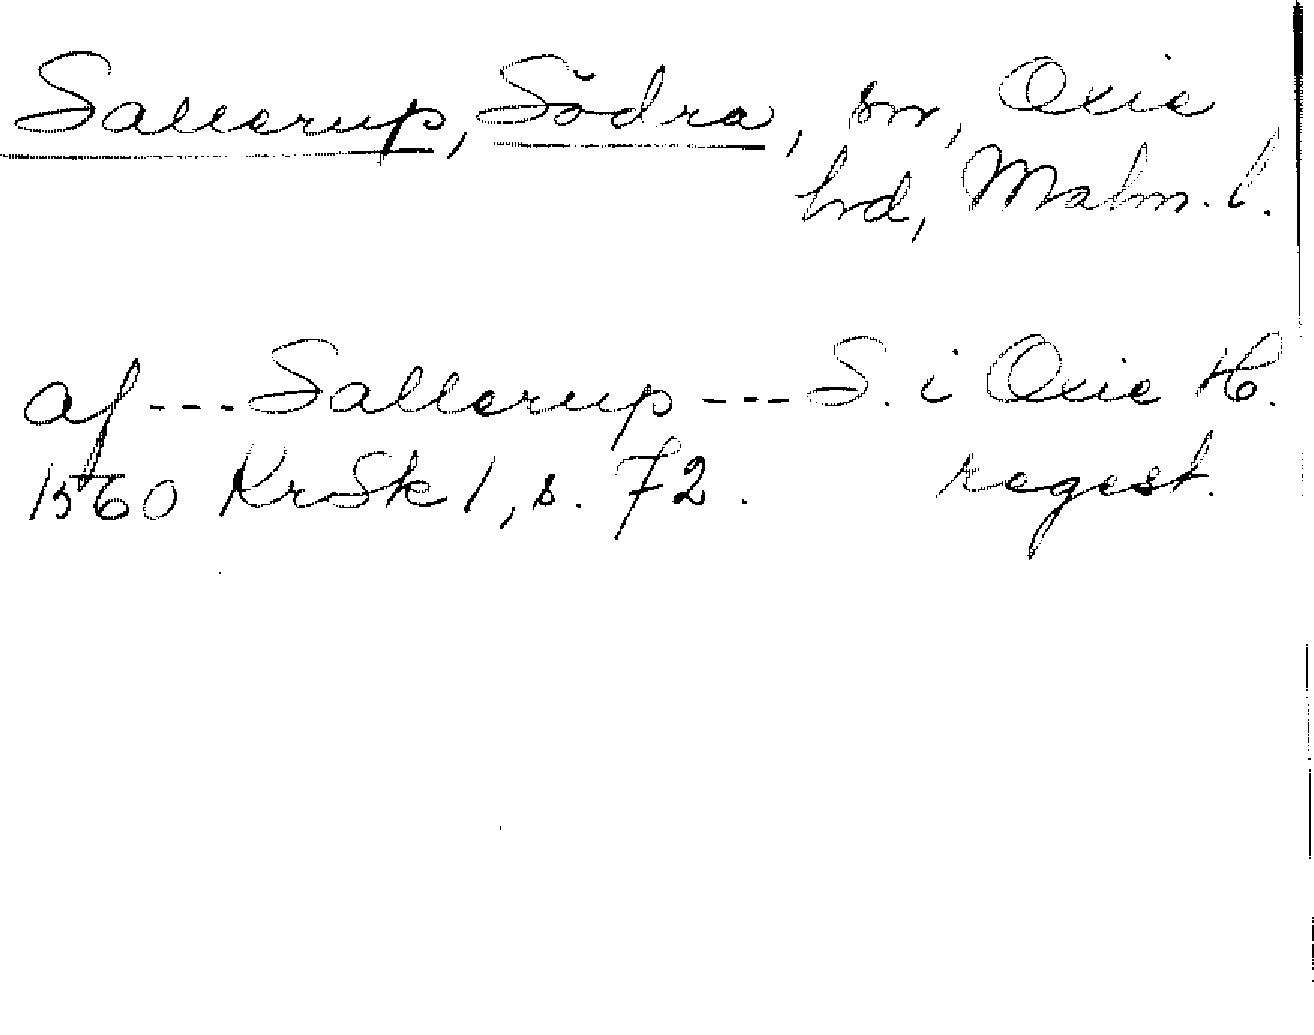 Sallerup, Södra, sn, Oxie
hd, Malm. l.
af --- Sallerup --- S. i Oxie H.
1560 KrSk 1, s. 72. regest.